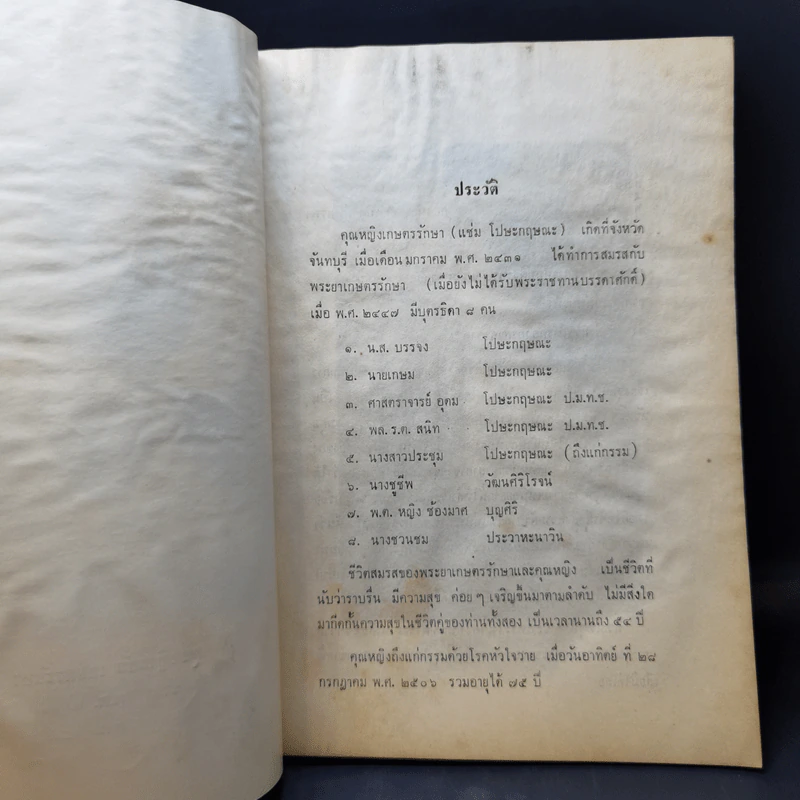 ประวัติ
คุณหญิงเกษตรรักษา (แช่ม โปษะกฤษณะ) เกิดที่จังหวัด
จันทบุรี เมื่อเดือนมกราคม พ.ศ. ๒๔๓๑ ได้ทำการสมรสกับ
พระยาเกษตรรักษา (เมื่อยังไม่ได้รับพระราชทานบรรดาศักดิ์)
เมื่อ พ.ศ. ๒๔๔๗ มีบุตรธิดา ๘ คน
๑. น.ส. บรรจง โปษะกฤษณะ
๒. นายเกษม โปษะกฤษณะ
๓. ศาสตราจารย์ อุดม โปษะกฤษณะ ป.ม.ท.ช.
๔. พล.ร.ต. สนิท โปษะกฤษณะ ป.ม.ท.ช.
๕. นางสาวประชุม โปษะกฤษณะ (ถึงแก่กรรม)
๖. นางชูชีพ วัฒนศิริโรจน์
๗. พ.ต. หญิง ช้องมาศ บุญศิริ
๘. นางชวนชม ประวาหะนาวิน
ชีวิตสมรสของพระยาเกษตรรักษาและคุณหญิง เป็นชีวิตที่
นับว่าราบรื่น มีความสุข ค่อย ๆ เจริญขึ้นมาตามลำดับ ไม่มีสิ่งใด
มากีดกั้นความสุขในชีวิตคู่ของท่านทั้งสอง เป็นเวลานานถึง ๕๔ ปี
คุณหญิงถึงแก่กรรมด้วยโรคหัวใจวาย เมื่อวันอาทิตย์ ที่ ๒๘
กรกฎาคม พ.ศ. ๒๕๐๖ รวมอายุได้ ๗๕ ปี